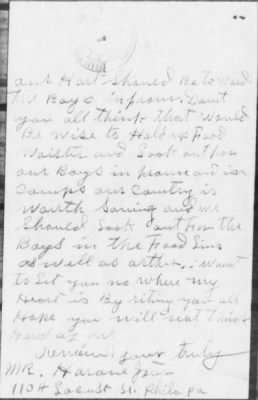 our Hart Should Be toward
The Boys in france. Dont
you all think that would
Be wise to Hold up Food
Waister and Look out for
our Boys in france and in
Camps our Country is
Worth Saving and we
Should Look out For the
Boys in the Food Line
as well as arther. I Want
to Let you no where my
Heart is By riting you all
Hope you will not Think
Hard of me
I remain yours truly
MR. Harone
1104 Locust St. Phila Pa